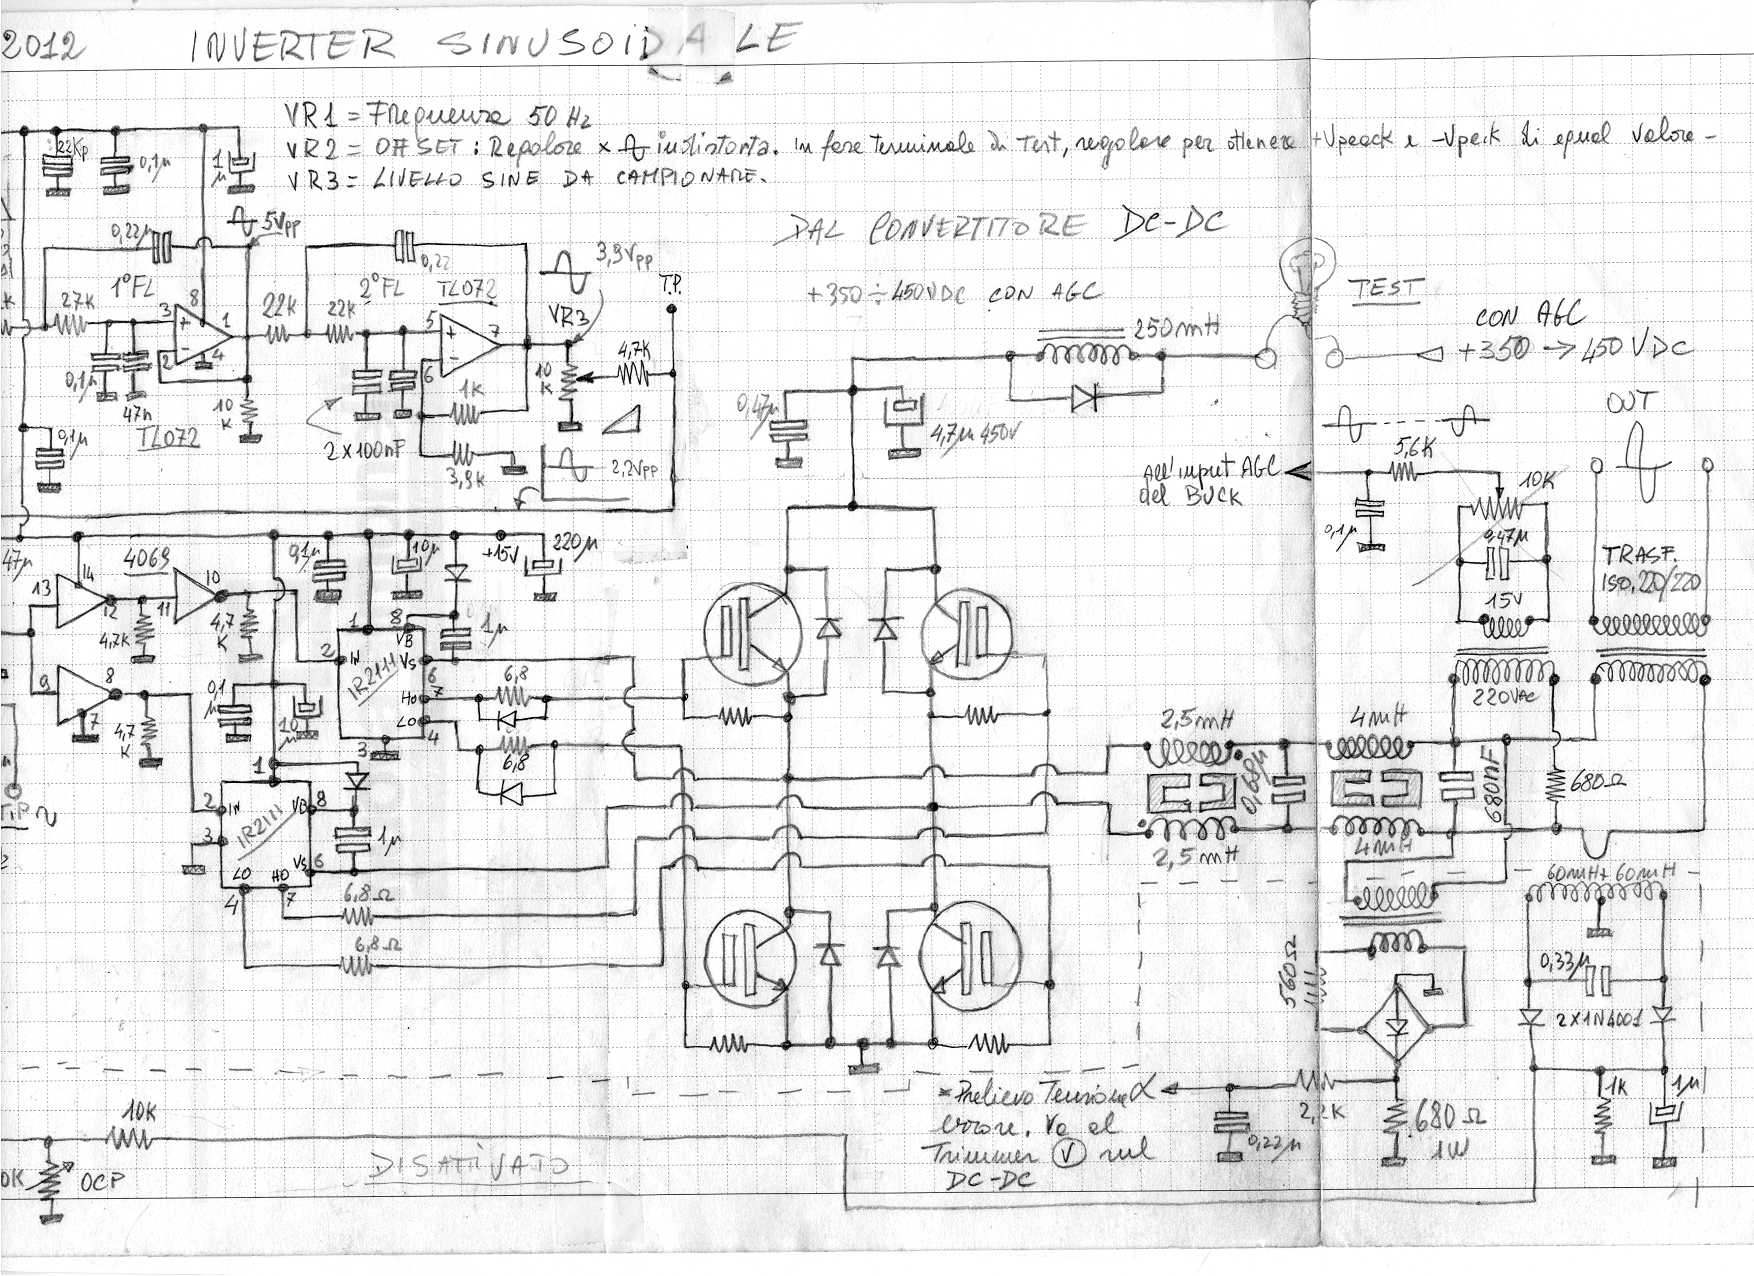 2012 INVERTER SINUSOIDALE
VR1 = Frequenza 50 Hz
VR2 = OFFSET : Regolare x indistorta. In fase terminale di Test, regolare per ottenere +Vpeack e -Vpeik di egual valore -
VR3 = LIVELLO SINE DA CAMPIONARE.
22Kp
0,1µ
1µ
5Vpp
DAL CONVERTITORE DC-DC
+350 ÷ 450VDC CON AGC
TEST
CON AGC
+350 → 450 VDC
250mH
0,22µ
1°FL
27K
3
8
1
2
4
22K
0,1µ
47n
10K
TL072
0,1µ
0,22
2°FL
TL072
22K
5
7
6
1K
3,9K
2x100nF
3,9Vpp
VR3
T.P.
4,7K
10K
2,2Vpp
0,47µ
4,7µ 450V
All'input AGC
del BUCK
5,6K
0,1µ
10K
0,47µ
15V
220VAC
OUT
TRASF.
ISO. 220/220
47µ
13
14
4069
12
11
10
4,7K
4,7K
9
8
7
4,7K
0,1µ
10µ
+15V
220µ
1
8
VB
1µ
2
IN
IR2111
VS
6
7
HO
LO
4
3
6,8
6,8
0,1µ
10µ
1
2
IN
3
IR2111
VB
8
1µ
VS
6
LO
HO
4
7
6,8Ω
6,8Ω
2,5mH
2,5mH
0,68µ
4mH
4mH
680nF
680Ω
60mH+60mH
0,33µ
2X1N4001
1K
1µ
560Ω
2,2K
0,22µ
680Ω
1W
*Prelievo Tensione
errore. Va al
Trimmer V sul
DC-DC
10K
OCP
DISATTIVATO